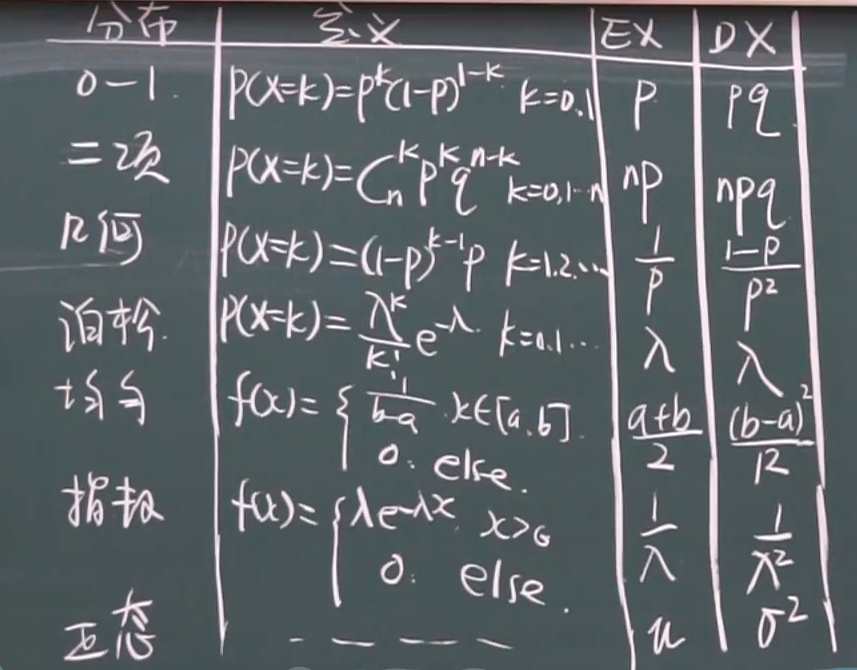 分布 定义 EX DX
0-1. P(X=k)=p^k(1-p)^{1-k} k=0.1 P pq
二项 P(X=k)=C_n^k p^k q^{n-k} k=0,1…n np npq
几何 P(X=k)=(1-p)^{k-1}p k=1.2.… 1/p (1-p)/p²
泊松. P(X=k)=λ^k/k! e^{-λ}. k=0.1… λ λ
均匀 f(x)={ 1/(b-a) . x∈[a.b]. (a+b)/2 (b-a)²/12
0. else.
指数 f(x)={ λe^{-λx} x>0 1/λ 1/λ²
0. else.
正态 ---- u σ²